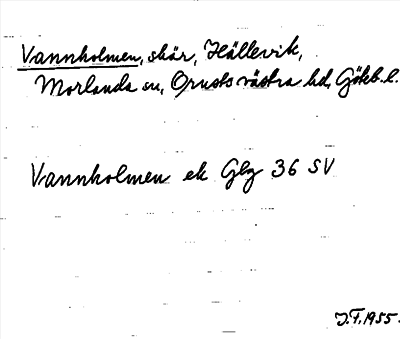 Vannholmen, skär, Hällevik,
Morlanda sn, Orusts västra hd, Göteb. l.
Vannholmen ek Glg 36 SV
J.F. 1955.